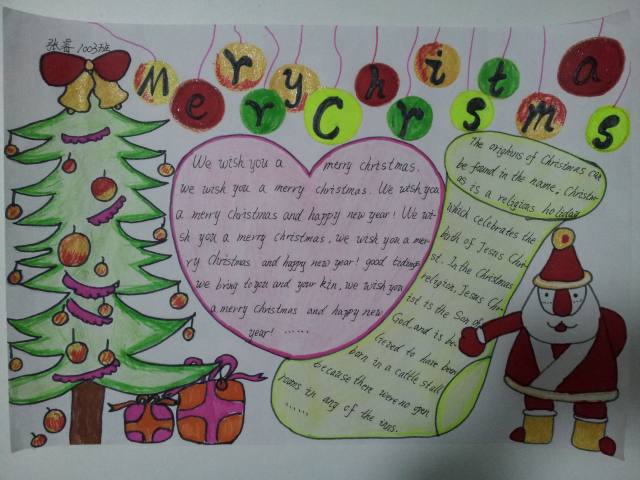 张睿 1003班
Merry Christmas
We wish you a merry christmas.
we wish you a merry christmas. We wish you
a merry christmas and happy new year! We wi-
sh you a merry christmas, we wish you a mer-
ry Christmas and happy new year! good tidings
we bring to you and your kin, we wish you
a merry christmas and happy new
year! ......
The orighns of Christmas can
be found in the name, Christm-
as is a religious holiday
which celebrates the
birth of Jesus Chri-
st. In the Christmas
religion, Jesus Chr-
ist is the Son of
God, and is be-
lieved to have been
born in a cattle stall
because there were no open
rooms in any of the inns.
......